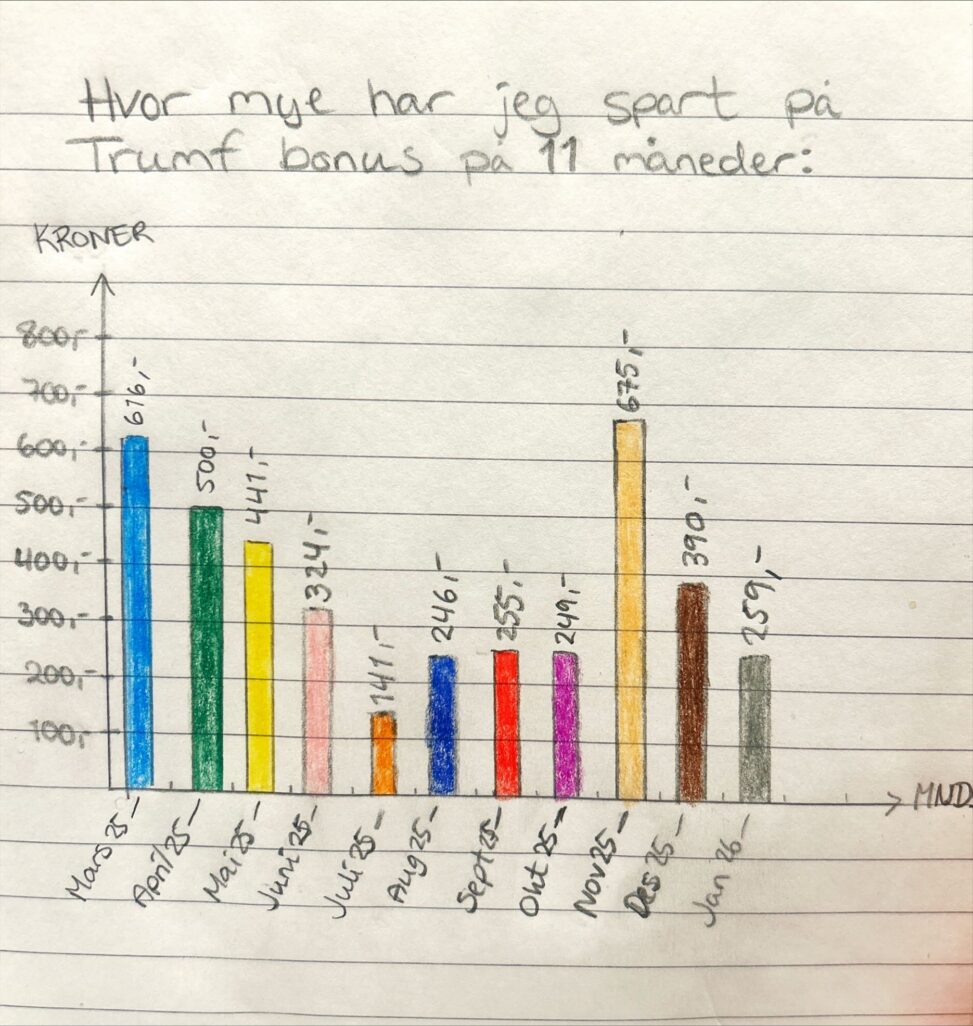 Hvor mye har jeg spart på
Trumf bonus på 11 måneder:
KRONER
800,-
700,-
600,-
500,-
400,-
300,-
200,-
100,-
616,-
500,-
441,-
324,-
141,-
246,-
255,-
249,-
675,-
390,-
259,-
MND.
Mars 25-
April 25-
Mai 25-
Juni 25-
Juli 25-
Aug 25-
Sept 25-
Okt 25-
Nov 25-
Des 25-
Jan 26-